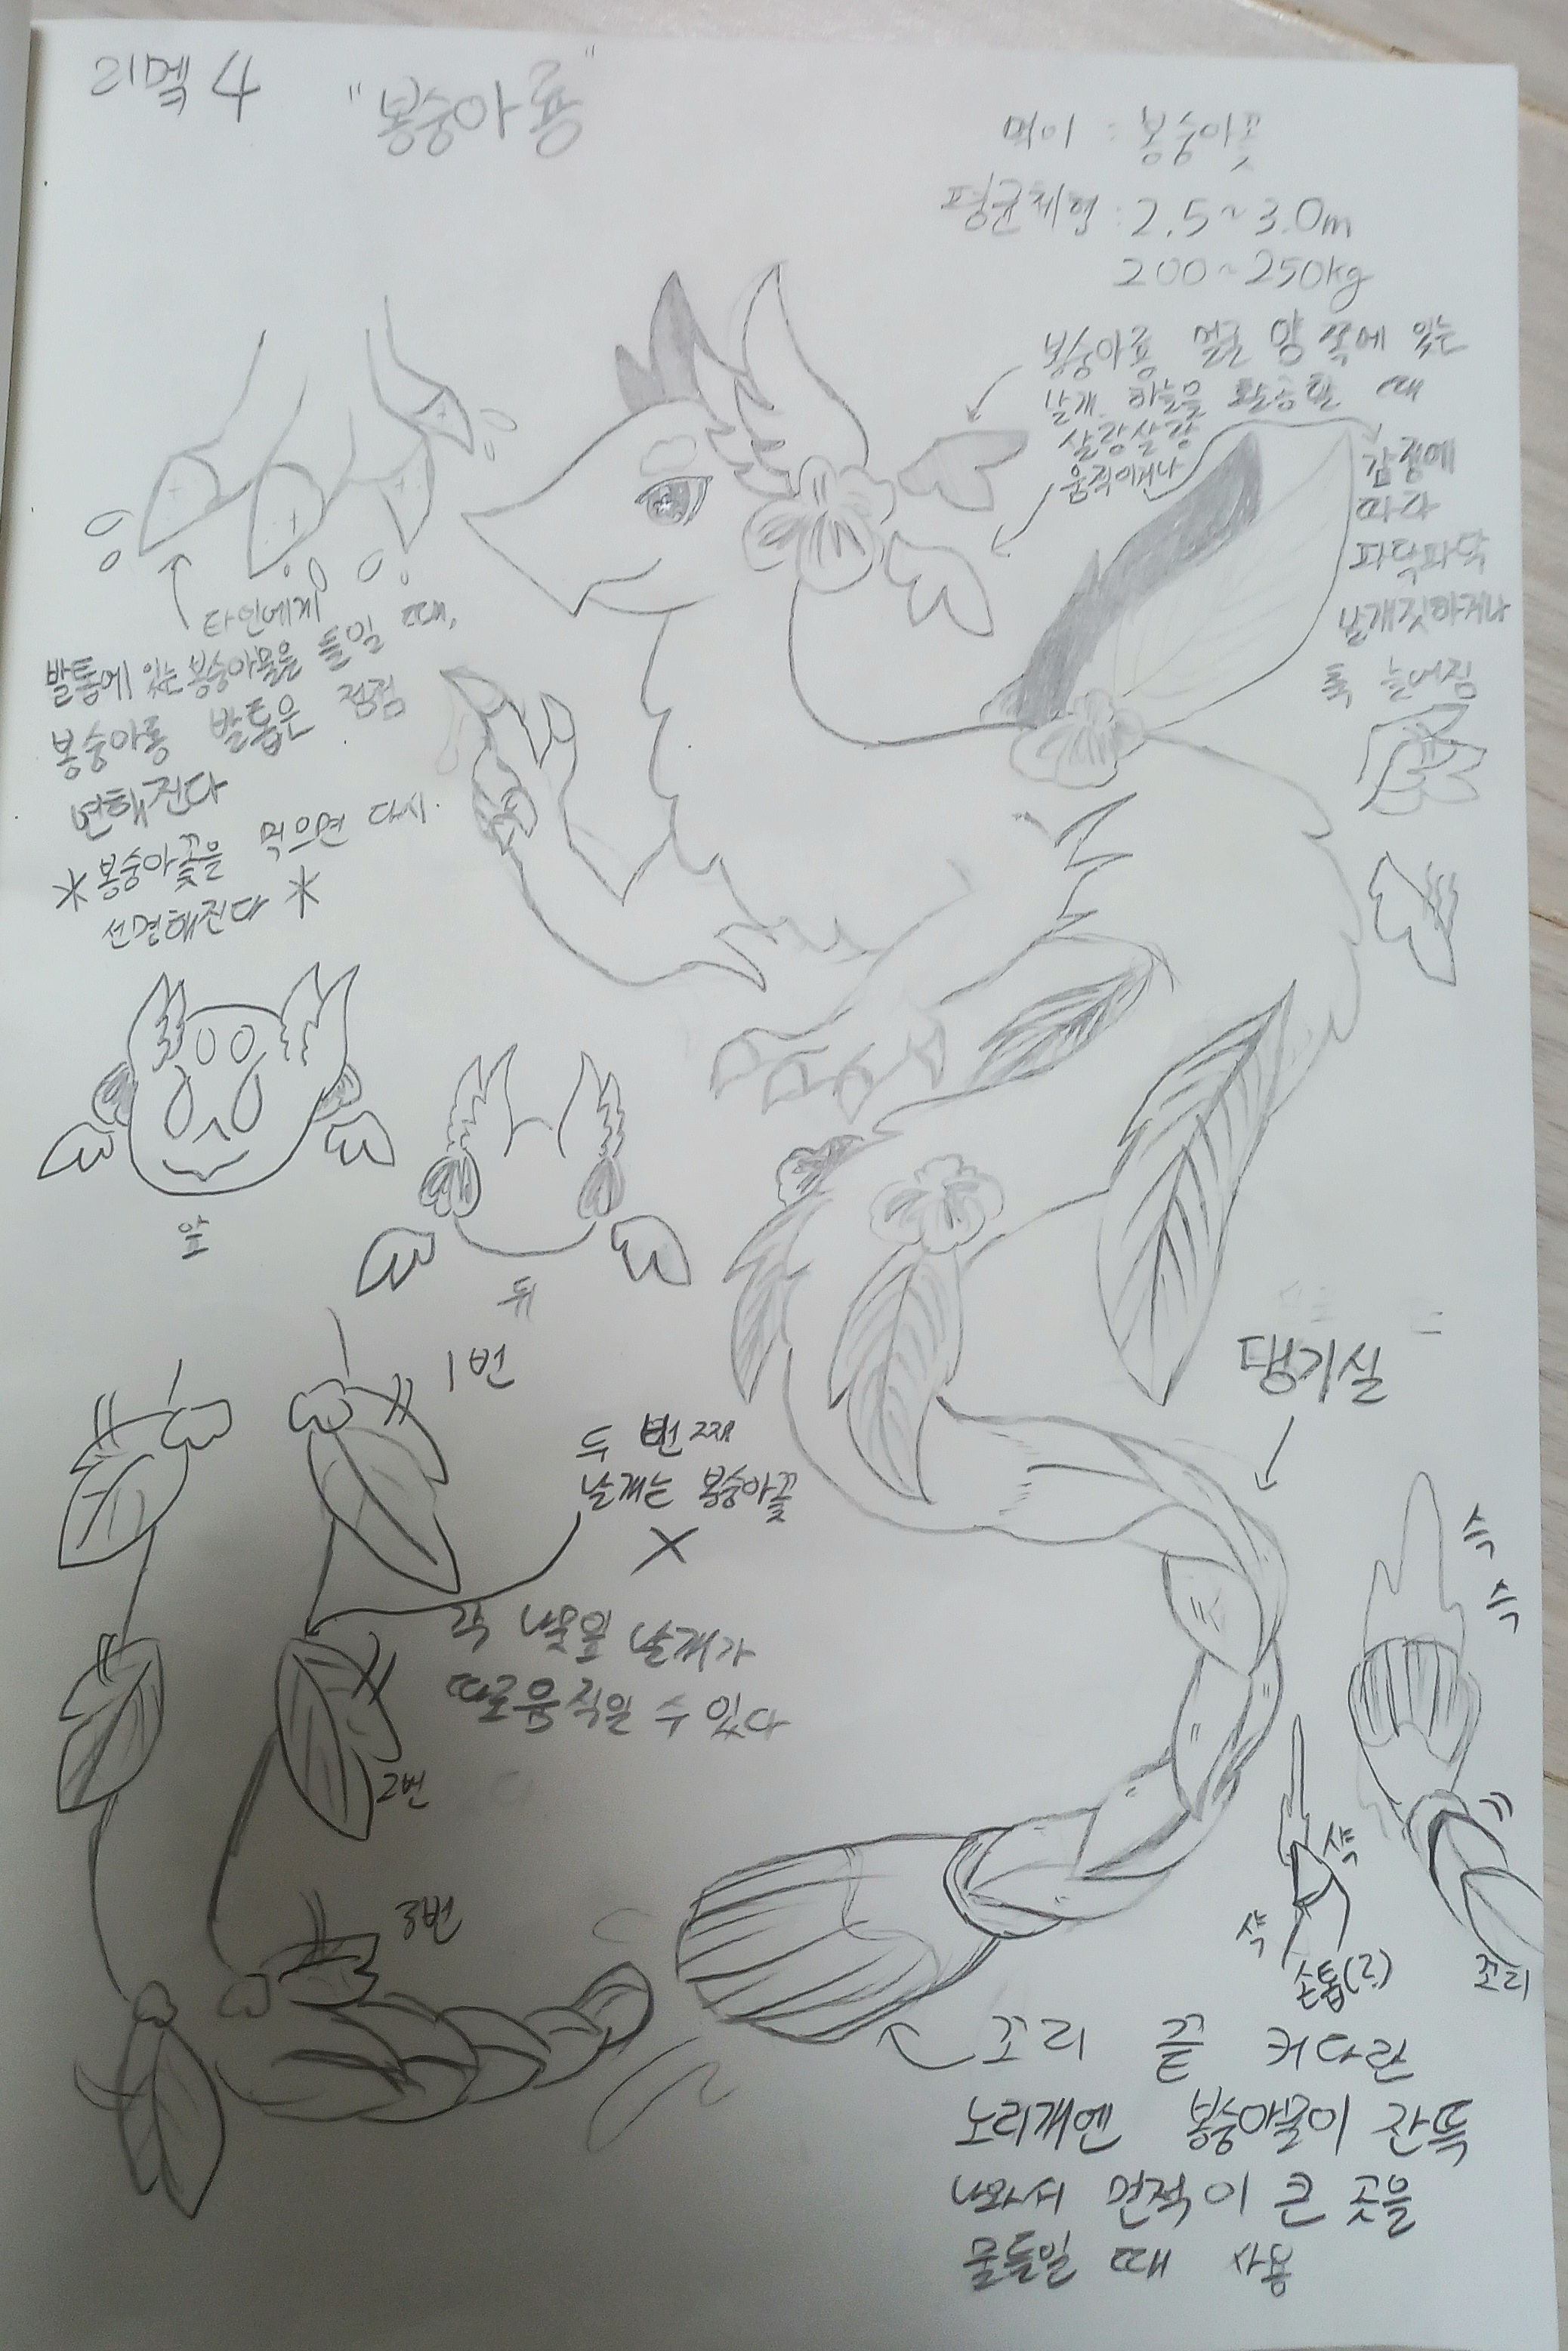 리멬 4
"봉숭아룡"
먹이 : 봉숭아꽃
평균체형 : 2.5~3.0m
200~250kg
봉숭아룡 얼굴 양 쪽에 있는
날개. 하늘을 활공할 때
살랑살랑
움직이거나
감정에
따라
파닥파닥
날개짓하거나
툭 늘어짐
타인에게
발톱에 있는 봉숭아물을 들일 때,
봉숭아룡 발톱은 점점
연해진다
*봉숭아꽃을 먹으면 다시
선명해진다 *
앞
뒤
1번
두 번째
날개는 봉숭아꽃
X
각 나뭇잎 날개가
따로 움직일 수 있다
2번
3번
댕기실
슥
슥
샥
샥
손톱(?)
꼬리
꼬리 끝 커다란
노리개엔 봉숭아물이 잔뜩
나와서 면적이 큰 곳을
물들일 때 사용